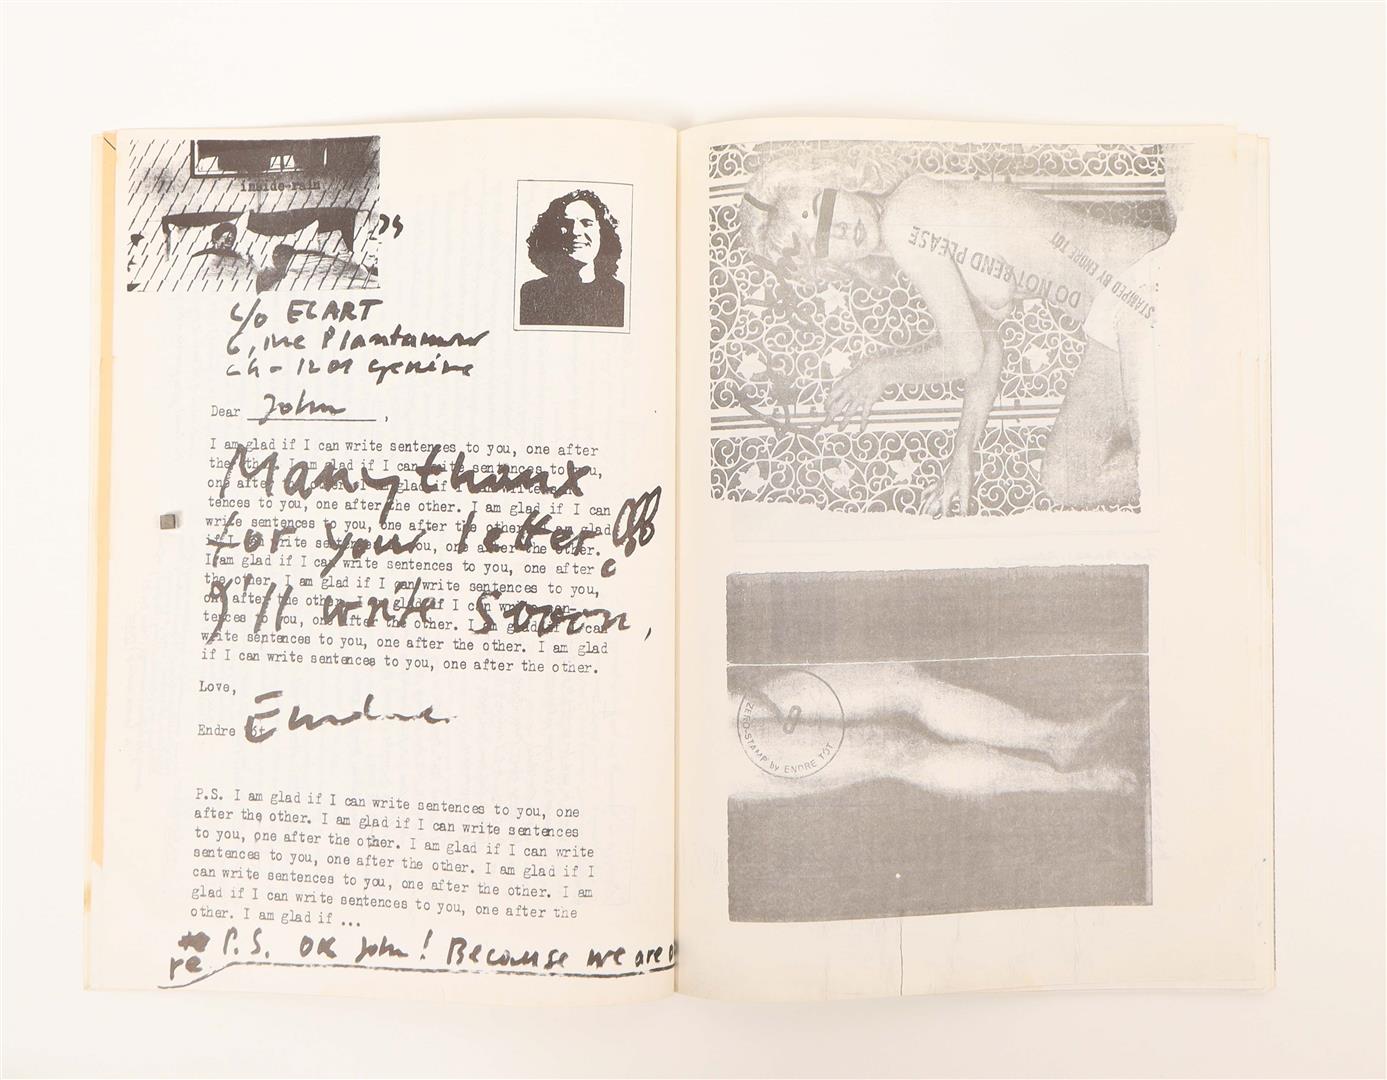 inside rain
c/o ECART
6, rue Plantamour
CH-1201 Genève
Dear John,
I am glad if I can write sentences to you, one after
the other. I am glad if I can write sentences to you,
one after the other. I am glad if I can write sen-
tences to you, one after the other. I am glad if I can
write sentences to you, one after the other. I am glad
if I can write sentences to you, one after the other.
I am glad if I can write sentences to you, one after
the other. I am glad if I can write sentences to you,
one after the other. I am glad if I can write sen-
tences to you, one after the other. I am glad if I can
write sentences to you, one after the other. I am glad
if I can write sentences to you, one after the other.
Many thanx
for your letter
I'll write sooon,
Love,
Endre
Endre Tót
P.S. I am glad if I can write sentences to you, one
after the other. I am glad if I can write sentences
to you, one after the other. I am glad if I can write
sentences to you, one after the other. I am glad if I
can write sentences to you, one after the other. I am
glad if I can write sentences to you, one after the
other. I am glad if ...
P.S. OK John! Because we are
re
DO NOT BEND PLEASE
STAMPED BY ENDRE TÓT
ZERO-STAMP by ENDRE TÓT
0